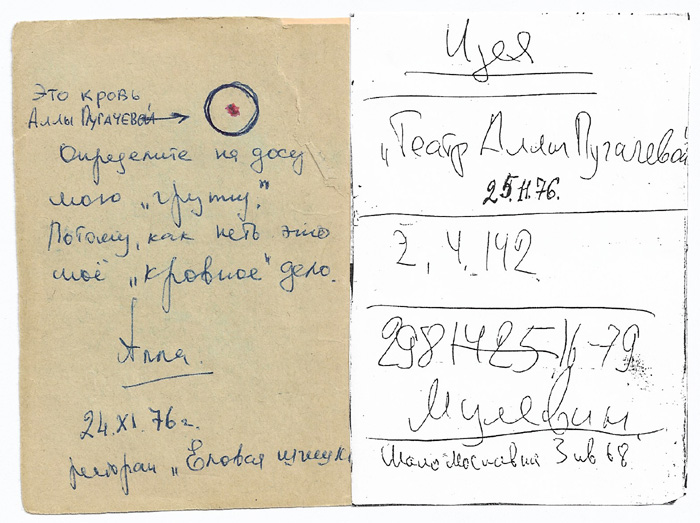 Это кровь
Аллы Пугачевой
Определите на досу
мою „группу."
Потому, как петь это
моё „кровное" дело.
Алла.
24.XI.76 г.
ресторан „Еловая шишка
Идея
„Театр Аллы Пугачевой
25.11.76.
2, 4, 142
298 1425 16-79
Мулявин
3 кв 68